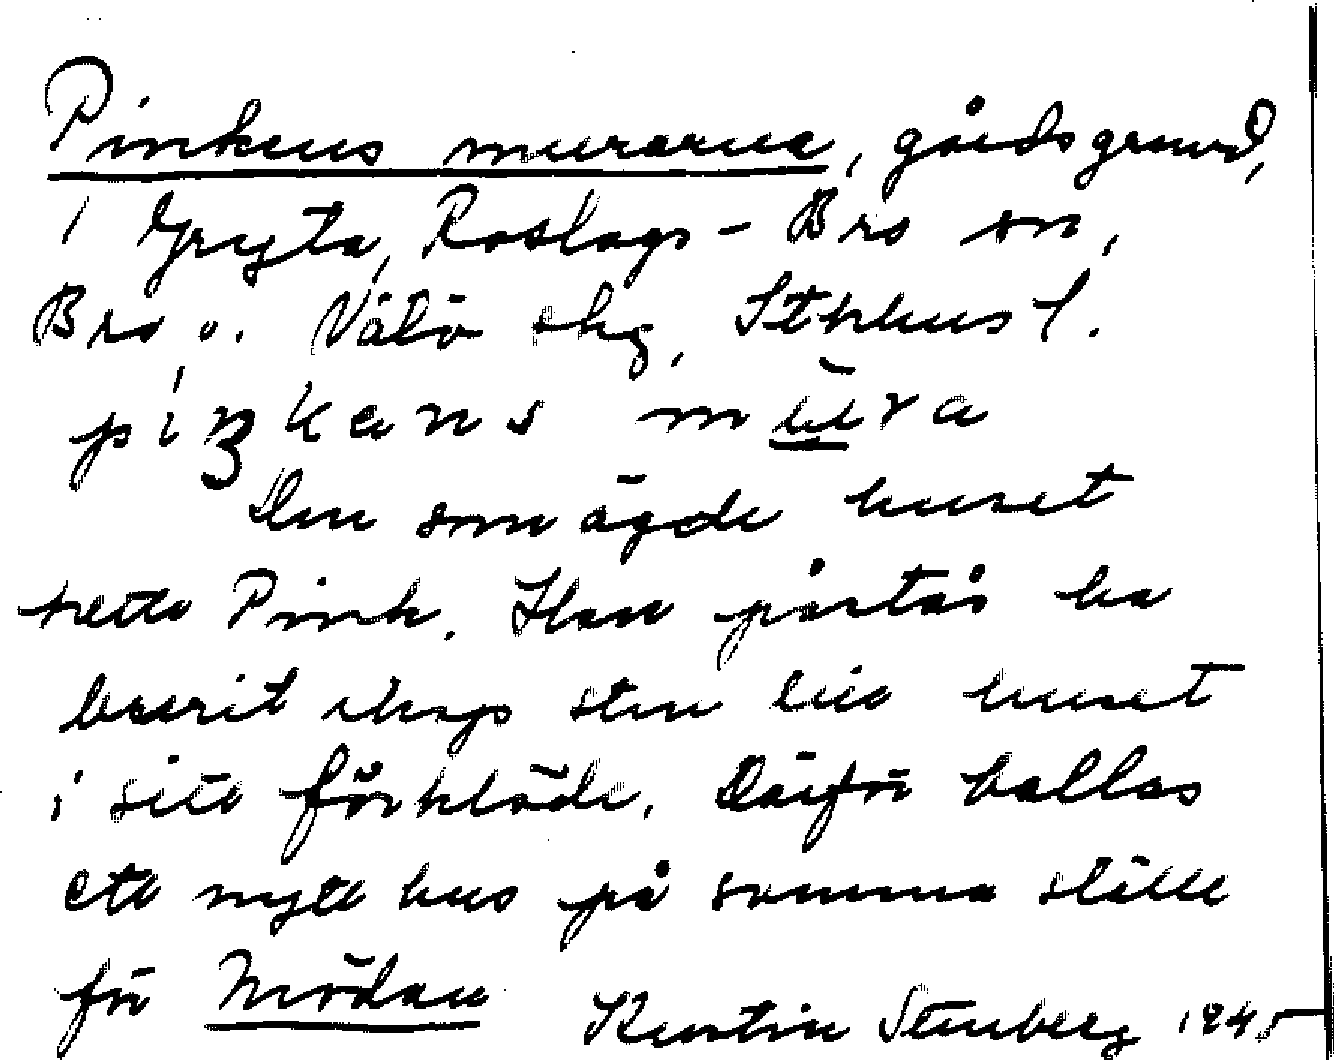 Pinkens murarna, gårdsgrund,
i Gryta, Roslags-Bro sn,
Bro o. Vätö skg, Sthlms l.
Den som ägde huset
hette Pink. Han påstås ha
burit ihop sten till huset
i sitt förkläde. Därför kallas
ett nytt hus på samma ställe
för Mödan
Kerstin Stenberg 1945